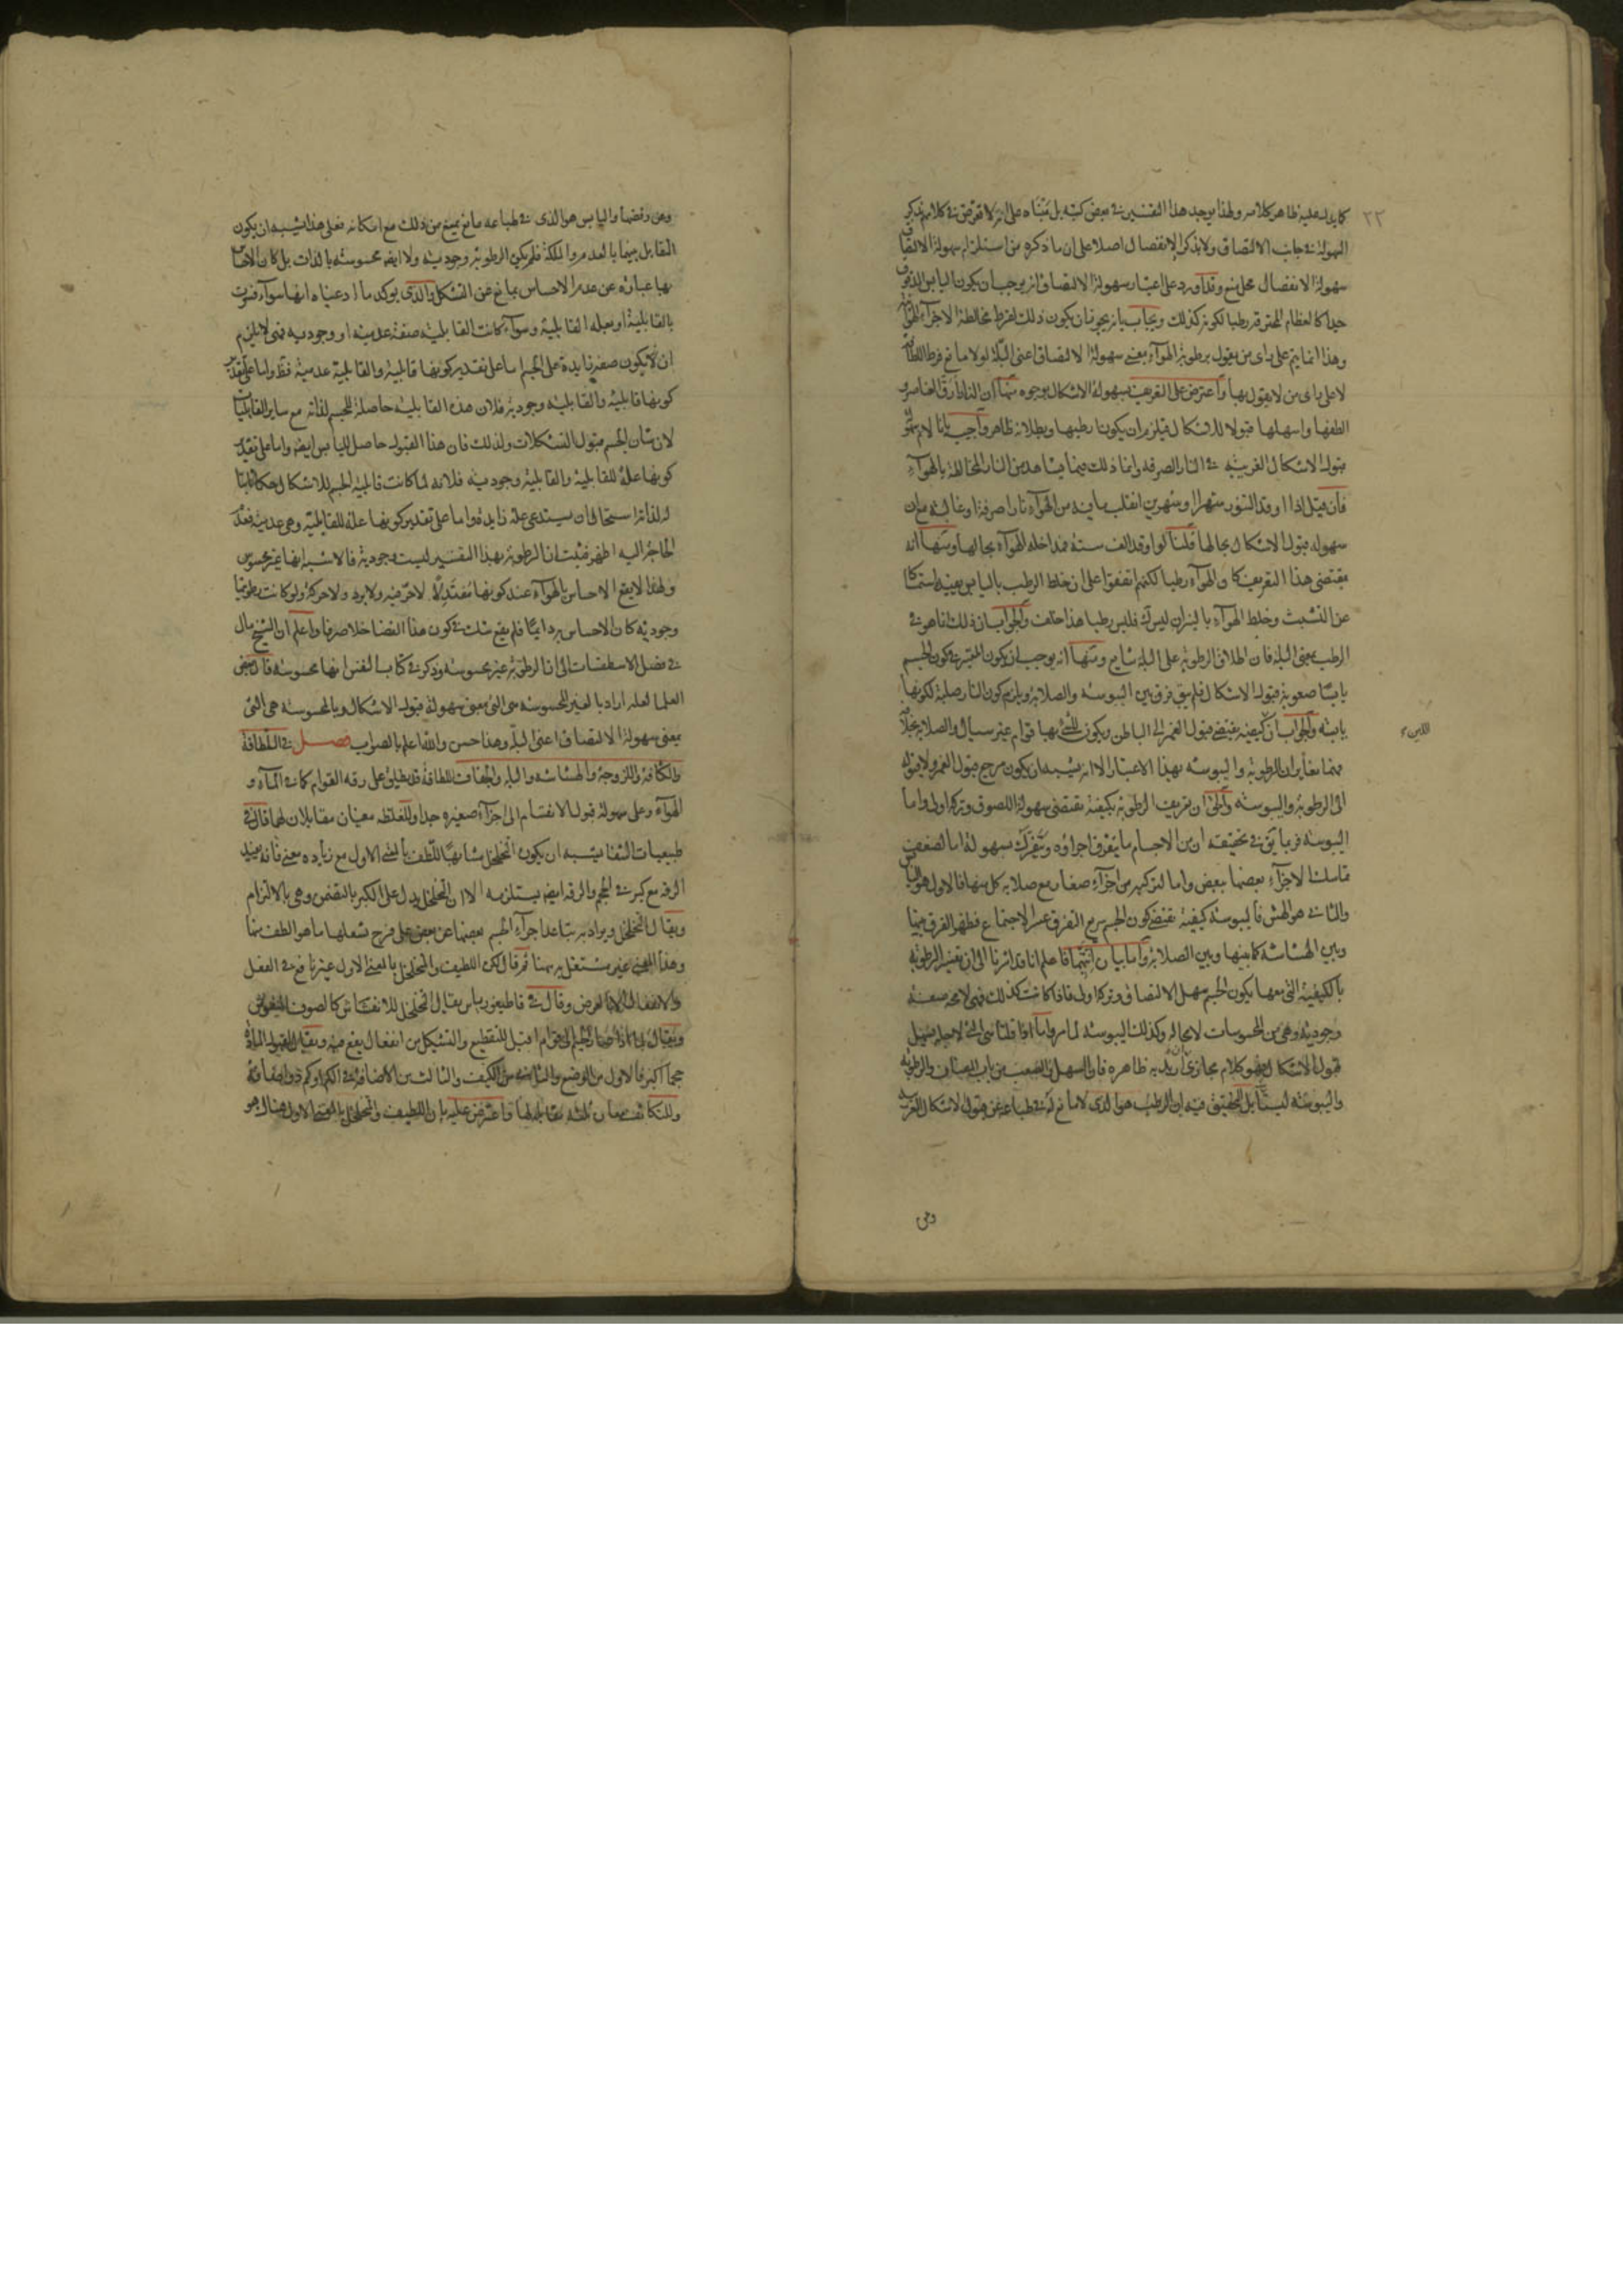 ٢٢
كما يدل عليه ظاهر كلامه ولهذا يوجد هذا التفسير فى بعض كتبه بل على انه لا تعرض فى كلامهم بذكر
السهولة فى جانب الالتصاق ولا بذكر الانفصال اصلا على ان ما ذكره من استلزام سهولة الالتصاق
سهولة الانفصال محل منع وقد اورد على اعتبار سهولة الالتصاق انه يوجب ان يكون اليابس المدقوق
جدا كالعظام المحترقة رطبا لكونه كذلك ويجاب بانه يجوز ان يكون ذلك لفرط مخالطة الاجزاء الهوائية
وهذا انما يتم على رأى من يقول برطوبة الهواء بمعنى سهولة الالتصاق اعنى البلة لولا مانع فرط اللطافة
لا على رأى من لا يقول بها واعترض على التعريف بسهولة الاشكال بوجوه منها ان النار ارق العناصر و
الطفها واسهلها قبولا للاشكال فيلزم ان يكون ارطبها وبطلانه ظاهر واجيب بانا لا نم سهولة
قبول الاشكال الغريبة فى النار الصرفة وانما ذلك فيما يشاهد من النار المخالطة بالهواء
فان قيل اذا اوقد التنور شهرا او شهرين انقلب ما فيه من الهواء نارا صرفة او غالبة مع ان
سهولة قبول الاشكال بحالها قلنا لو اوقد الف سنة فمداخلة الهواء بحالها ومنها انه
يقتضى هذا التعريف كا والهواء رطبا لكنهم اتفقوا على ان خلط الرطب باليابس يفيد استمساكا
عن التشتت وخلط الهواء بالنيران ليس كك فليس رطبا هذا خلف والجواب ان ذلك انما هو فى
الرطب بمعنى البلة فان اطلاق الرطوبة على البلة شايع ومنها انه يوجب ان يكون المعتبر فى كون الجسم
يابسا صعوبة قبول الاشكال فلم يبق فرق بين اليبوسة والصلابة ويلزم كون النار صلبة لكونها
يابسة والجواب ان كيفية يقتضى قبول الغمز الى الباطن ويكون للشئ بها قوام غير سيال والصلابة بخلافه
اللين
فهما مغايران للرطوبة واليبوسة بهذا الاعتبار الا انه يشبه ان يكون مرجع قبول الغمز ولا قبوله
الى الرطوبة واليبوسة والحق ان تعريف الرطوبة بكيفية يقتضى سهولة اللصوق وتركه اولى واما
اليبوسة فربما يق فى تحقيقه ان من الاجسام ما يتفرق اجزاؤه ويتفرك بسهولة اما لضعف
تماسك الاجزاء بعضها ببعض واما لتركبه من اجزاء صغار مع صلابة كل منها فالاول هو اليابس
والثانى هو الهش فاليبوسة كيفية تقتضى كون الجسم سريع التفرق عسر الاجتماع فظهر الفرق بينها
وبين الهشاشة كما بينها وبين الصلابة واما بيان انيتهما فاعلم انا قد اثرنا الى ان تفسير الرطوبة
بالكيفية التى معها يكون الجسم سهل الالتصاق وتركه اولى فاذا كانت كذلك فهى لامحه صفة
وجودية وهى من المحسوسات لامحالة وكذلك اليبوسة لما مر واما اذا قلنا هى التى لاجلها يسهل
قبول الاشكال فهو كلام مجازى ان اريد به ظاهره فان السهل والصعب من باب المضاف والرطوبة
واليبوسة ليستا بل التحقيق فيه ان الرطب هو الذى لا مانع له فى طباعه عن قبول الاشكال الغريبة
وعن
وعن رفضها واليابس هو الذى فى طباعه مانع يمنع من ذلك مع امكانه فعلى هذا يشبه ان يكون
التقابل بينهما بالعدم والملكة فلم يكن الرطوبة وجودية ولا ايضا محسوسة بالذات بل كان الاحساس
بها عبارة عن عدم الاحساس بمانع عن التشكل والذى يوكد ما ادعيناه انها سواء فسرت
بالقابلية او بعلة القابلية وسواء كانت القابلية صفة عدمية او وجودية فهى لا يلزم
ان لا يكون صفة زايدة على الجسم اما على تقدير كونها قابلية والقابلية عدمية فظ واما على تقدير
كونها قابلية والقابلية وجودية فلان هذه القابلية حاصلة للجسم لذاته مع ساير القابليات
لان شان الجسم قبول التشكلات ولذلك فان هذا القبول حاصل لليابس ايضا واما على تقدير
كونها علة للقابلية والقابلية وجودية فلانه لما كانت قابلية الجسم للاشكال حكما ثابتا
له لذاته استحال ان يستدعى علة زايدة واما على تقدير كونها علة للقابلية وهى عدمية فعدم
الحاجة اليه اظهر فثبت ان الرطوبة بهذا التفسير ليست وجودية فالاشبه انها غير محسوس
ولهذا لا يقع الاحساس بالهواء عند كونها معتدلا لا حر فيه ولا برد ولا حركة ولو كانت رطوبتها
وجودية كان الاحساس به دايما فلم يقع شك فى كون هذا الفضا خلا صرفا واعلم ان الشيخ مال
فى فصل الاسطقسات الى ان الرطوبة غير محسوسة وذكر فى كتاب النفس انها محسوسة قال بعض
العلما لعله اراد بالغير المحسوسة هى التى بمعنى سهولة قبول الاشكال وبالمحسوسة هى التى
بمعنى سهولة الالتصاق اعنى البلة وهذا حسن والله اعلم بالصواب فصل فى اللطافة
والكثافة واللزوجة والهشاشة والبلة والجفاف اللطافة قد يطلق على رقة القوام كما فى الماء و
الهواء وعلى سهولة قبول الانقسام الى اجزاء صغيرة جدا وللغلظة معنيان مقابلان لهما قال فى
طبيعيات الشفا يشبه ان يكون التخلخل مشابها للطف بالمعنى الاول مع زيادة معنى فانه يفيد
الرقة مع كبر فى الحجم والرقة ايضا يستلزمه الا ان التخلخل يدل على الكبر بالتضمن وهى بالالتزام
ويقال التخلخل ويراد به تباعد اجزاء الجسم بعضها عن بعض على فرج يشغلها ما هو الطف منها
وهذا المعنى غير مشتغل به ههنا ثم قال لكن اللطيف والمتخلخل بالمعنى الاول غير نافع فى الفعل
والانفعال الا بالعرض وقال فى قاطيغورياس يقال التخلخل للانفشاش كالصوف المنفوش
ويقال اذا صار الجسم الى قوام اقبل للتقطيع والتشكل من انفعال يقع فيه ويقال لقبول المادة
حجما اكبر فالاول من الوضع والثانى من الكيف والثالث من الاضافة فى الكم او كم ذو اضافة
وللتكاثف معان ثلثة مقابلة لها واعترض عليه بان اللطيف والمتخلخل بالمعنى الاول هناك هو